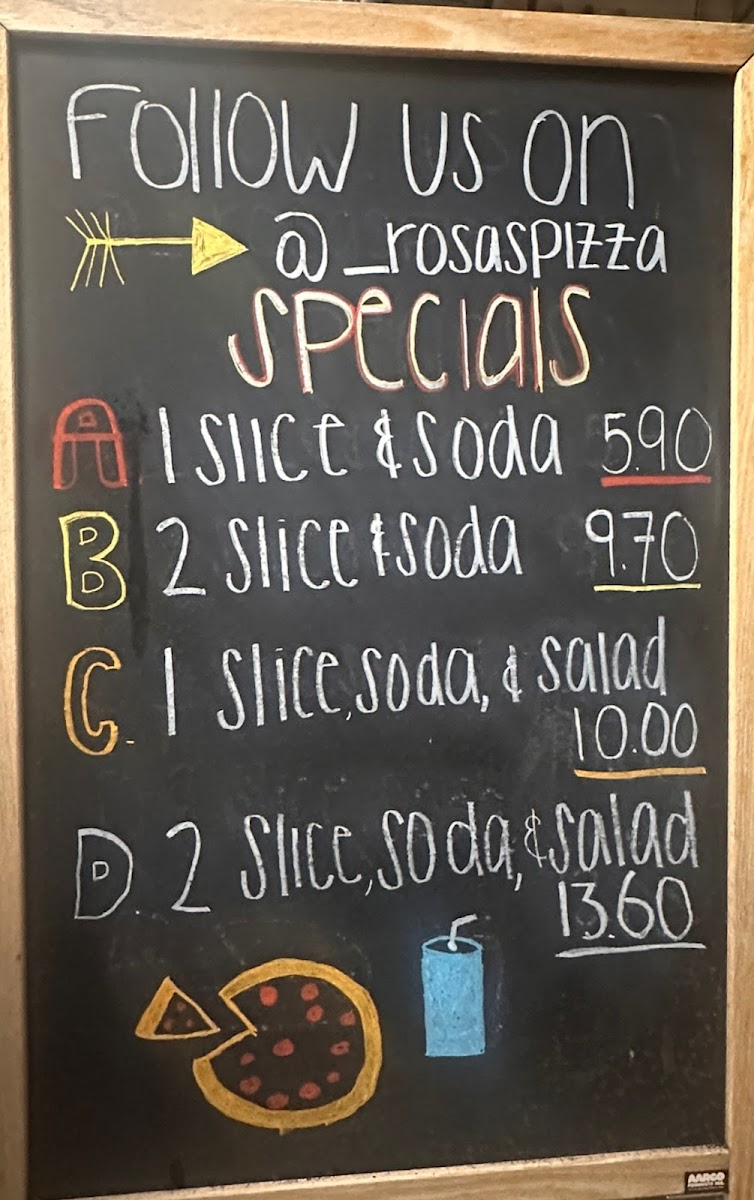 Follow us on
@_rosaspizza
specials
A 1 slice & soda 5.90
B 2 slice & soda 9.70
C. 1 slice, soda, & salad
10.00
D 2 slice, soda, & salad
13.60
AARCO